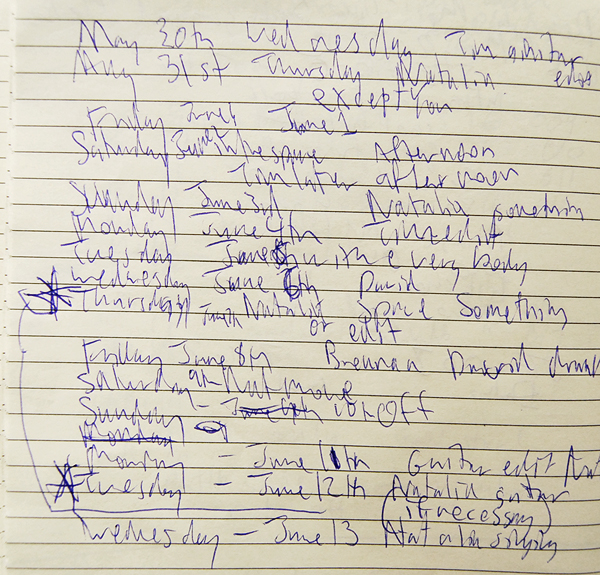 May 30th Wednesday Tim guitar edits
May 31st Thursday Natalia
except you
Friday June 1
Saturday June
Tim later afternoon Afternoon
Sunday June 3rd Natalia something
Monday June 4th Tim edit
Tuesday June 5th with everybody
Wednesday June 6th David
Thursday June 7th Natalia Space Something
or edit
Friday June 8th Brennan David drunk
Saturday 9th Nat move
Sunday - June 10th Off
Monday
Monday - June 11th Guitar edit Nat
Tuesday - June 12th Natalia guitar
(if necessary)
Wednesday - June 13 Natalia singing